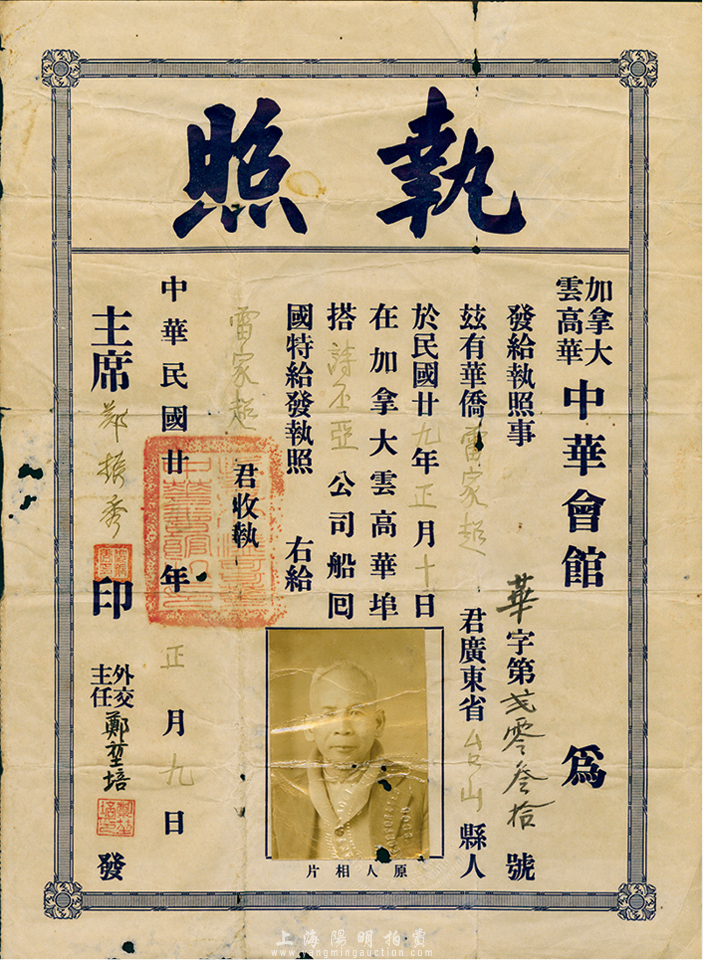 執照
加拿大雲高華中華會館 為
發給執照事 華字第貳零叁拾號
茲有華僑雷家超君廣東省台山縣人
於民國廿九年正月十日
在加拿大雲高華埠
搭詩丕亞公司船囘
國特給發執照 右給
雷家超 君收執
中華民國廿 年 正月九日
主席 鄭振秀 印 外交主任 鄭堃培 發
原人相片
上海陽明拍賣
www.yangmingauction.com